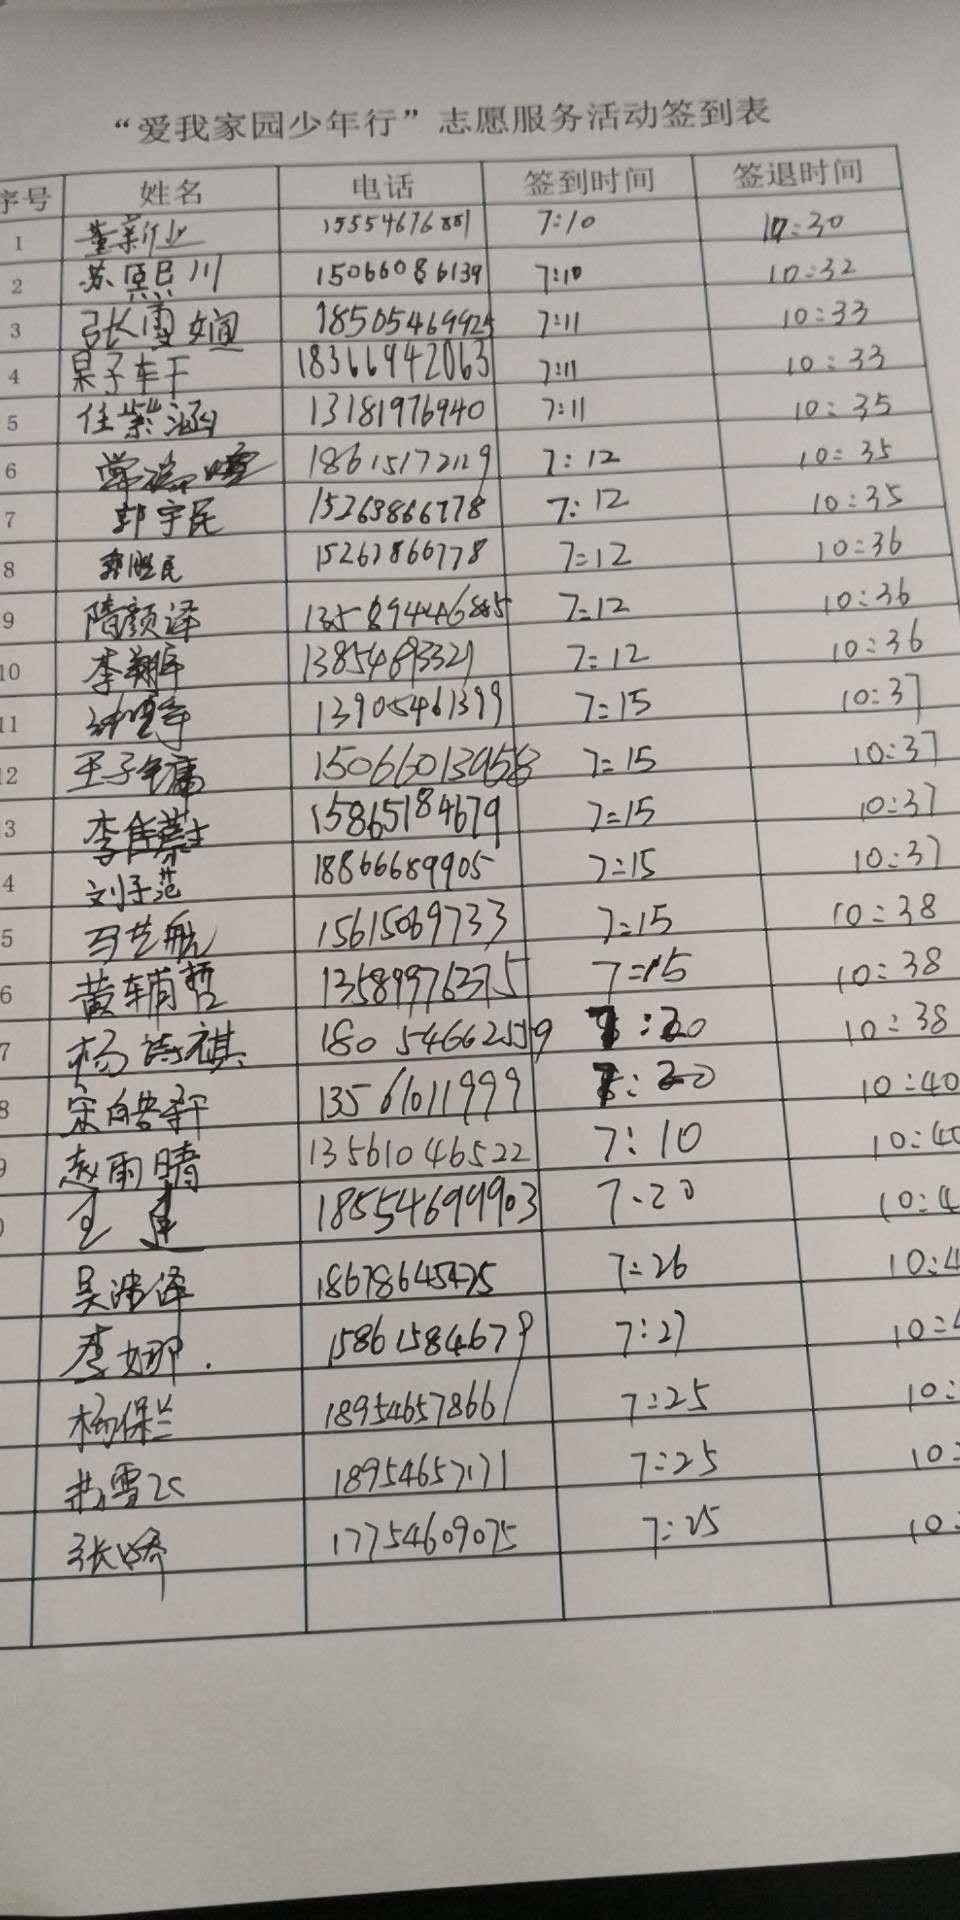 “爱我家园少年行”志愿服务活动签到表
序号 姓名 电话 签到时间 签退时间
1 董新业 15554676881 7:10 10:30
2 苏熙川 15066086139 7:10 10:32
3 张雪娴 18505469925 7:11 10:33
4 18366942063 7:11 10:33
5 任紫涵 13181976940 7:11 10:35
6 18615172129 7:12 10:35
7 郭宇民 15263866778 7:12 10:35
8 郭胜民 15263866778 7:12 10:36
9 隋颜译 7:12 10:36
10 李翔宇 13854893321 7:12 10:36
11 13905461399 7:15 10:37
12 王子 7:15 10:37
3 李佳 15865184679 7:15 10:37
4 刘子范 18866689905 7:15 10:37
5 马艺航 15615069733 7:15 10:38
6 黄辅哲 13589976375 7:15 10:38
7 杨诗祺 18054662559 7:20 10:38
8 宋 13561011999 7:20 10:40
9 赵雨晴 13561046522 7:10 10:40
王建 18554699903 7:20 10:4
吴浩泽 18678645475 7:26 10:4
李娜 15861584679 7:27 10:4
杨保兰 18954657866 7:25 10:
雪飞 18954657171 7:25 10:
张娇 17754609075 7:25 10: